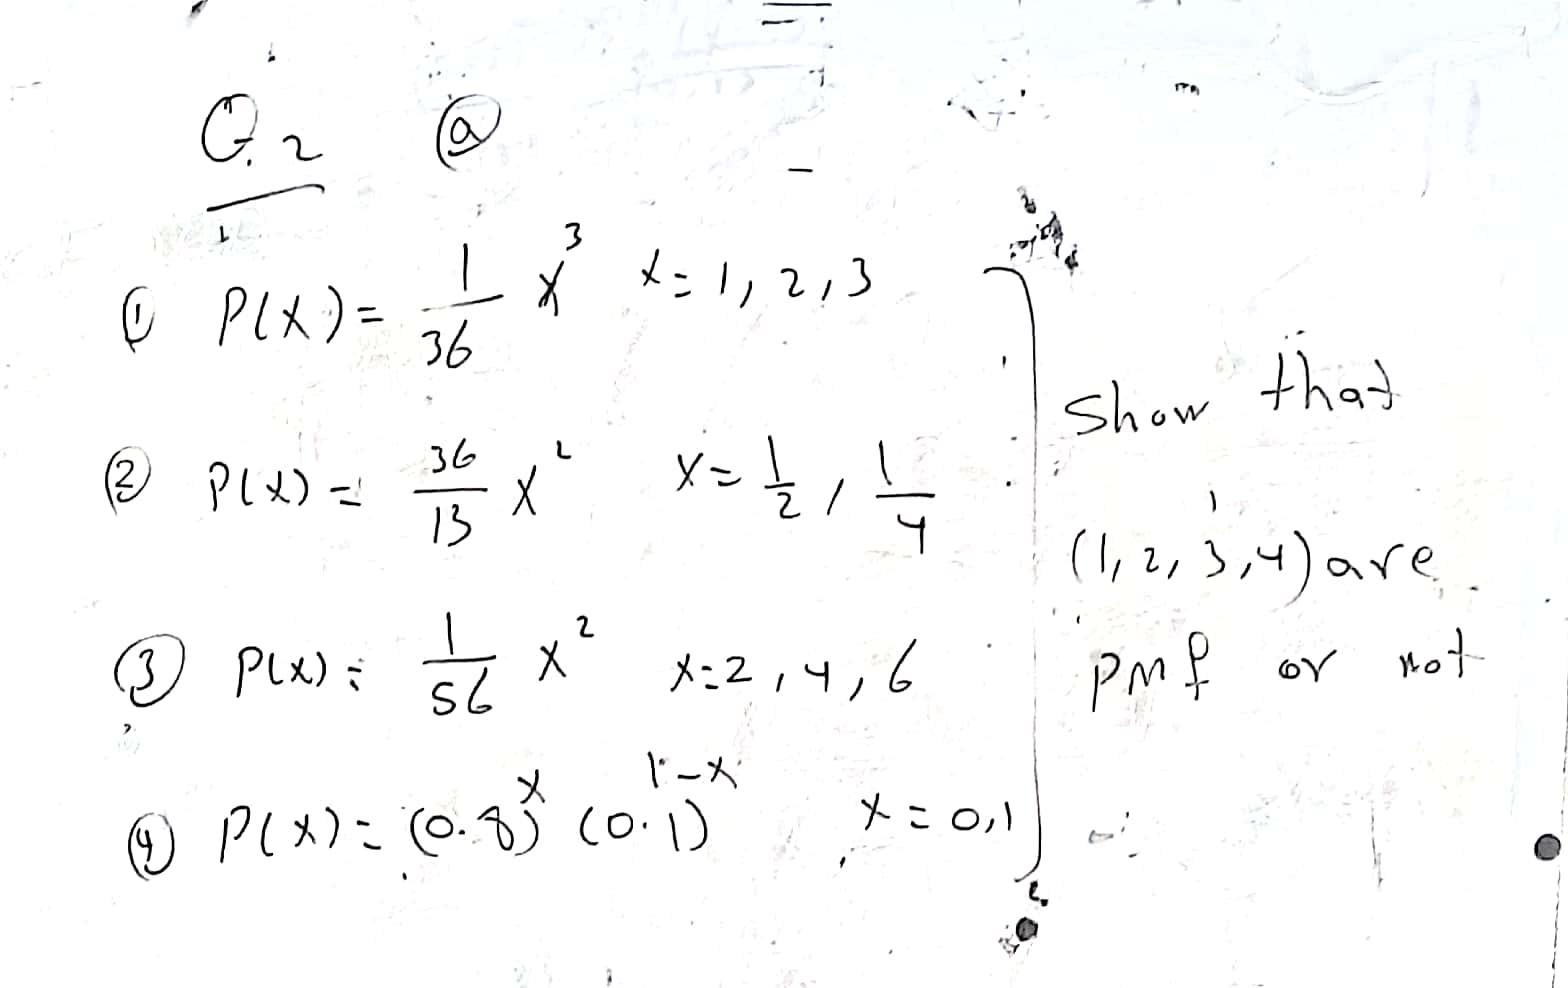 Q.2 (a)
① P(x) = 1/36 x³ x = 1, 2, 3
② P(x) = 36/13 x² x = 1/2, 1/4
③ P(x) = 1/56 x² x = 2, 4, 6
④ P(x) = (0.8)^x (0.1)^(1-x) x = 0, 1
Show that
(1, 2, 3, 4) are
pmf or not